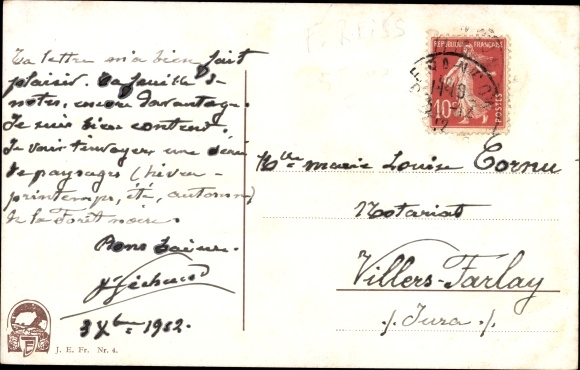 Ta lettre m'a bien fait
plaisir. Ta feuille de
notes, encore davantage.
Je suis bien content,
Je vais t'envoyer une série
de paysages (hiver
printemps, été, automne)
de la Forêt noire
Bons baisers.
3 Xbre 1912
F. REISS
REPUBLIQUE FRANÇAISE
10c
POSTES
Mlle Marie Louise Cornu
Notariat
Villers-Farlay
./. Jura ./.
J. E. Fr. Nr. 4.